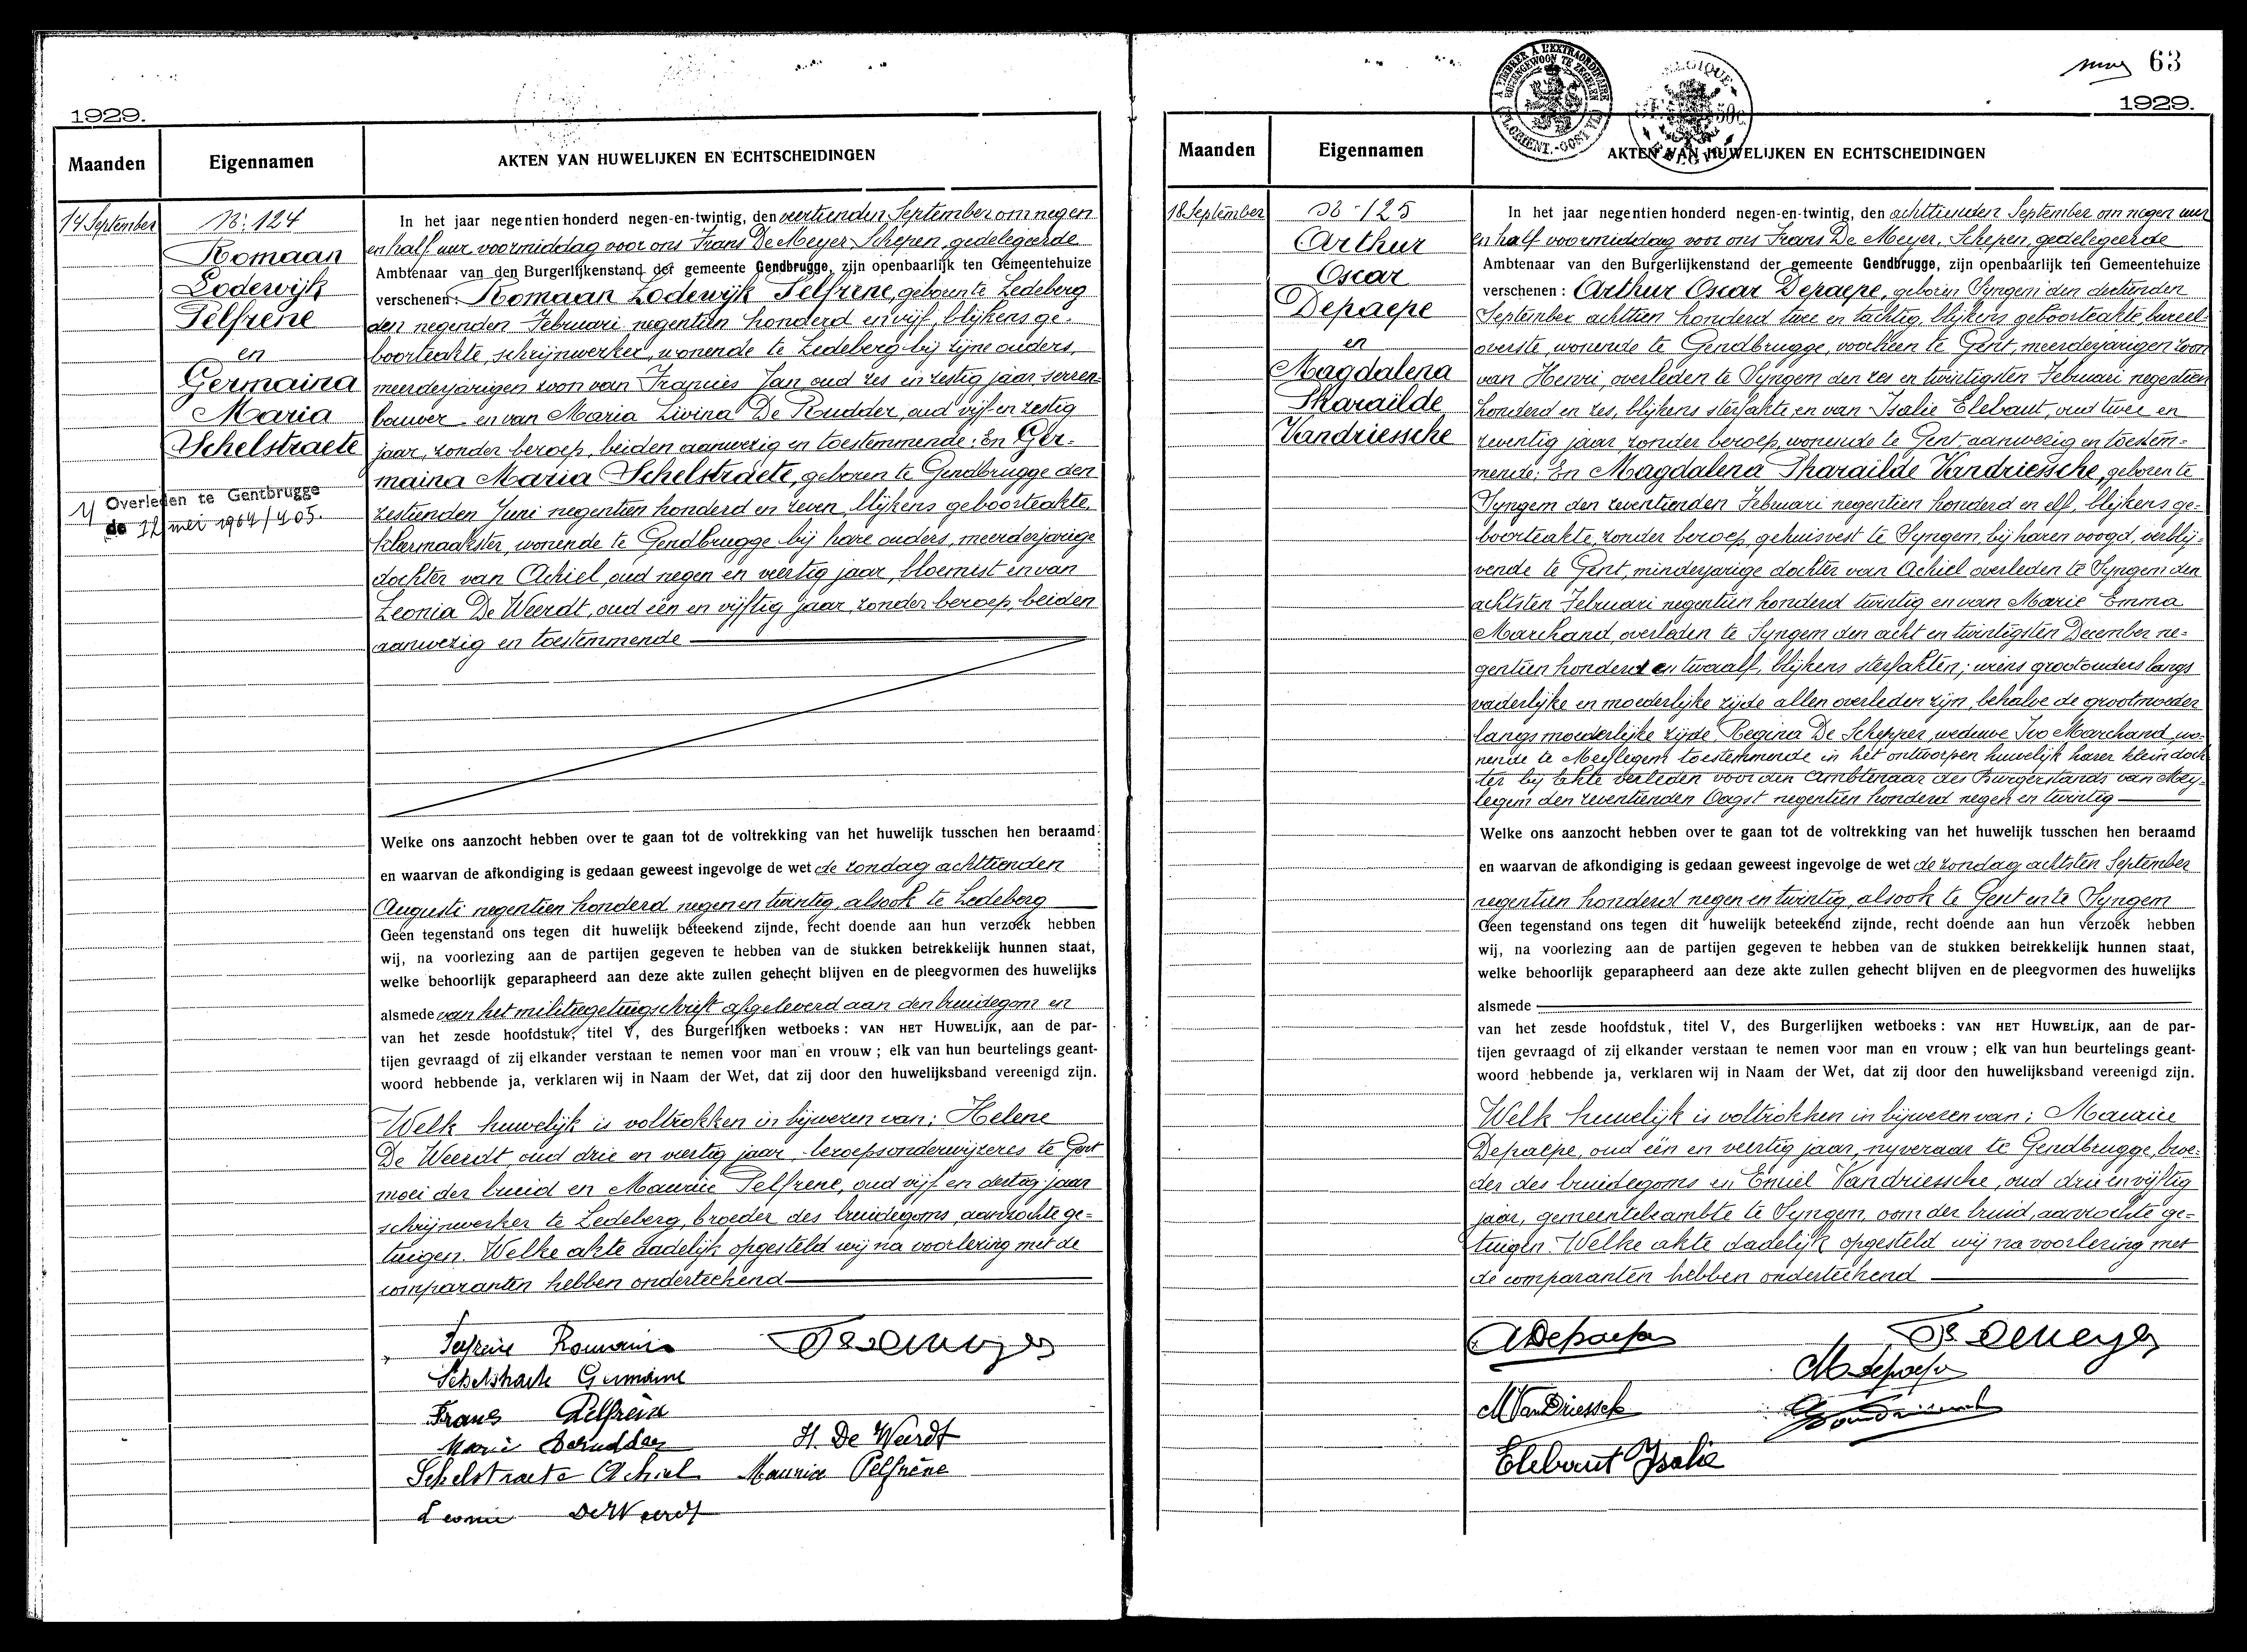 1929.
Maanden
Eigennamen
AKTEN VAN HUWELIJKEN EN ECHTSCHEIDINGEN
14 September
N: 124
Romaan
Lodewijk
Pelfrene
en
Germaina
Maria
Schelstraete
1/ Overleden te Gentbrugge
de 12 mei 1964/405.
In het jaar negentien honderd negen-en-twintig, den veertienden September om negen
en half uur voormiddag voor ons Frans De Meyer Schepen, gedelegeerde
Ambtenaar van den Burgerlijkenstand der gemeente Gendbrugge, zijn openbaarlijk ten Gemeentehuize
verschenen: Romaan Lodewijk Pelfrene, geboren te Ledeberg
den negenden Februari negentien honderd en vijf, blijkens ge-
boorteakte, schrijnwerker, wonende te Ledeberg bij zijne ouders,
meerderjarigen zoon van François Jan oud zes en zestig jaar serren-
bouwer en van Maria Livina De Rudder, oud vijf en zestig
jaar, zonder beroep, beiden aanwezig en toestemmende: En Ger-
maina Maria Schelstraete, geboren te Gendbrugge den
zestienden Juni negentien honderd en zeven, blijkens geboorteakte,
kleermaakster, wonende te Gendbrugge bij hare ouders, meerderjarige
dochter van Achiel, oud negen en veertig jaar, bloemist en van
Leonia De Weerdt, oud één en vijftig jaar, zonder beroep, beiden
aanwezig en toestemmende
Welke ons aanzocht hebben over te gaan tot de voltrekking van het huwelijk tusschen hen beraamd
en waarvan de afkondiging is gedaan geweest ingevolge de wet de zondag achttienden
Augusti negentien honderd negen en twintig, alsook te Ledeberg
Geen tegenstand ons tegen dit huwelijk beteekend zijnde, recht doende aan hun verzoek hebben
wij, na voorlezing aan de partijen gegeven te hebben van de stukken betrekkelijk hunnen staat,
welke behoorlijk geparapheerd aan deze akte zullen gehecht blijven en de pleegvormen des huwelijks
alsmede van het militiegetuigschrift afgeleverd aan den bruidegom en
van het zesde hoofdstuk, titel V, des Burgerlijken wetboeks: VAN HET HUWELIJK, aan de par-
tijen gevraagd of zij elkander verstaan te nemen voor man en vrouw; elk van hun beurtelings geant-
woord hebbende ja, verklaren wij in Naam der Wet, dat zij door den huwelijksband vereenigd zijn.
Welk huwelijk is voltrokken in bijwezen van: Helene
De Weerdt oud drie en veertig jaar, beroepsonderwijzeres te Gent
moei der bruid en Maurice Pelfrene, oud vijf en dertig jaar
schrijnwerker te Ledeberg, broeder des bruidegoms, aanzochte ge-
tuigen. Welke akte dadelijk opgesteld wij na voorlezing met de
comparanten hebben onderteekend
Pelfrene Romain
Schelstraete Germaine
Frans Pelfrène
Marie Derudder
H. De Weerdt
Schelstraete Achiel
Maurice Pelfrène
Leonie De Weerdt
63
1929.
A TIMBRER A L'EXTRAORDINAIRE
BUITENGEWOON TE ZEGELEN
FL. ORIENT.-OOST VL.
Maanden
Eigennamen
AKTEN VAN HUWELIJKEN EN ECHTSCHEIDINGEN
18 September
N: 125
Arthur
Oscar
Depaepe
en
Magdalena
Pharaïlde
Vandriessche
In het jaar negentien honderd negen-en-twintig, den achttienden September om negen uur
en half voormiddag voor ons Frans De Meyer, Schepen, gedelegeerde
Ambtenaar van den Burgerlijkenstand der gemeente Gendbrugge, zijn openbaarlijk ten Gemeentehuize
verschenen: Arthur Oscar Depaepe, geboren Syngem den dertienden
September achttien honderd twee en tachtig, blijkens geboorteakte, bureel-
overste, wonende te Gendbrugge, voorheen te Gent, meerderjarigen zoon
van Henri, overleden te Syngem den zes en twintigsten Februari negentien
honderd en zes, blijkens sterfakte en van Isalie Elebaut, oud twee en
zeventig jaar zonder beroep, wonende te Gent, aanwezig en toestem-
mende: En Magdalena Pharaïlde Vandriessche, geboren te
Syngem den zeventienden Februari negentien honderd en elf, blijkens ge-
boorteakte, zonder beroep, gehuisvest te Syngem, bij haren voogd, verblij-
vende te Gent, minderjarige dochter van Achiel overleden te Syngem den
achtsten Februari negentien honderd twintig en van Marie Emma
Marchand, overleden te Syngem den acht en twintigsten December ne-
gentien honderd en twaalf, blijkens sterfakten; wiens grootouders langs
vaderlijke en moederlijke zijde allen overleden zijn, behalve de grootmoeder
langs moederlijke zijde, Regina De Schepper, weduwe Ivo Marchand, wo-
nende te Meylegem toestemmende in het ontworpen huwelijk harer kleindoch
ter bij akte verleden voor den Ambtenaar des Burgerstands van Mey-
legem den zeventienden Oogst negentien honderd negen en twintig
Welke ons aanzocht hebben over te gaan tot de voltrekking van het huwelijk tusschen hen beraamd
en waarvan de afkondiging is gedaan geweest ingevolge de wet de zondag achtsten September
negentien honderd negen en twintig, alsook te Gent en te Syngem
Geen tegenstand ons tegen dit huwelijk beteekend zijnde, recht doende aan hun verzoek hebben
wij, na voorlezing aan de partijen gegeven te hebben van de stukken betrekkelijk hunnen staat,
welke behoorlijk geparapheerd aan deze akte zullen gehecht blijven en de pleegvormen des huwelijks
alsmede
van het zesde hoofdstuk, titel V, des Burgerlijken wetboeks: VAN HET HUWELIJK, aan de par-
tijen gevraagd of zij elkander verstaan te nemen voor man en vrouw; elk van hun beurtelings geant-
woord hebbende ja, verklaren wij in Naam der Wet, dat zij door den huwelijksband vereenigd zijn.
Welk huwelijk is voltrokken in bijwezen van: Maurice
Depaepe, oud één en veertig jaar, nyveraar te Gendbrugge, broe-
der des bruidegoms en Emiel Vandriessche, oud drie en vijftig
jaar, gemeentebeambte te Syngem, oom der bruid, aanzochte ge-
tuigen. Welke akte dadelijk opgesteld wij na voorlezing met
de comparanten hebben onderteekend
ADepaepe
Fs Demeyer
M Depaepe
M VanDriessche
Elebaut Isalie